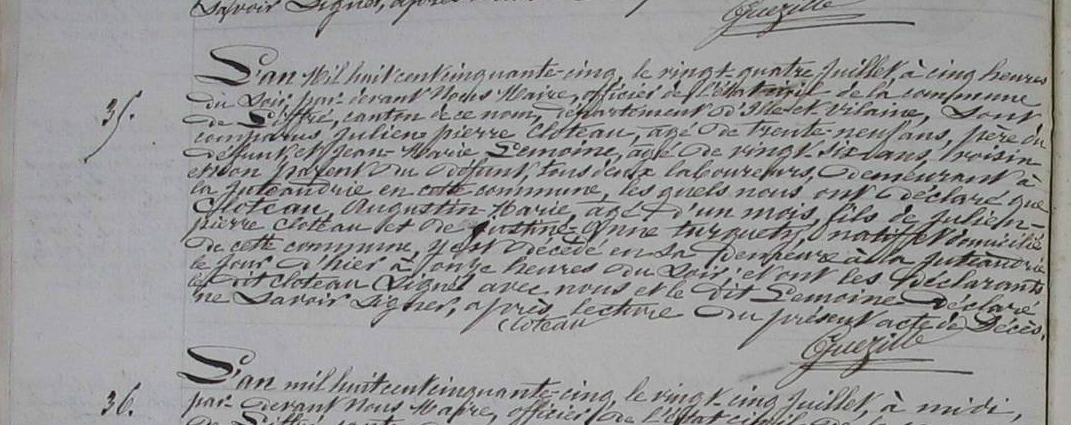 Savoir Signer, après
Guezille
L'an Mil huit cent cinquante-cinq, le vingt-quatre Juillet, à cinq heures
35. du Soir, par-devant Nous Maire, officier de l'état civil de la commune
de Liffré, canton de ce nom, département d'Ille-et-Vilaine, Sont
comparus, Julien-pierre Cloteau, âgé de trente-neuf ans, père du
défunt, et Jean-Marie Lemoine, âgé de vingt-six ans, voisin
et non parent du défunt, tous deux laboureurs, demeurant à
la Juteaudrie en cette commune, les quels nous ont déclaré que
Cloteau, Augustin-Marie, âgé d'un mois, fils de Julien-
pierre Cloteau et de Justine-Anne turquety, natif et domicilié
de cette commune, y est décédé en sa demeure à la Juteaudrie
le jour d'hier à onze heures du Soir; et ont les déclarants
le dit Cloteau Signé avec nous et le dit Lemoine déclaré
ne Savoir Signer, après lecture du présent acte de Décès.
cloteau
Guezille
L'an mil huit cent cinquante-cinq, le vingt-cinq Juillet, à midi,
36. par-devant Nous Maire, officier de l'état civil de la